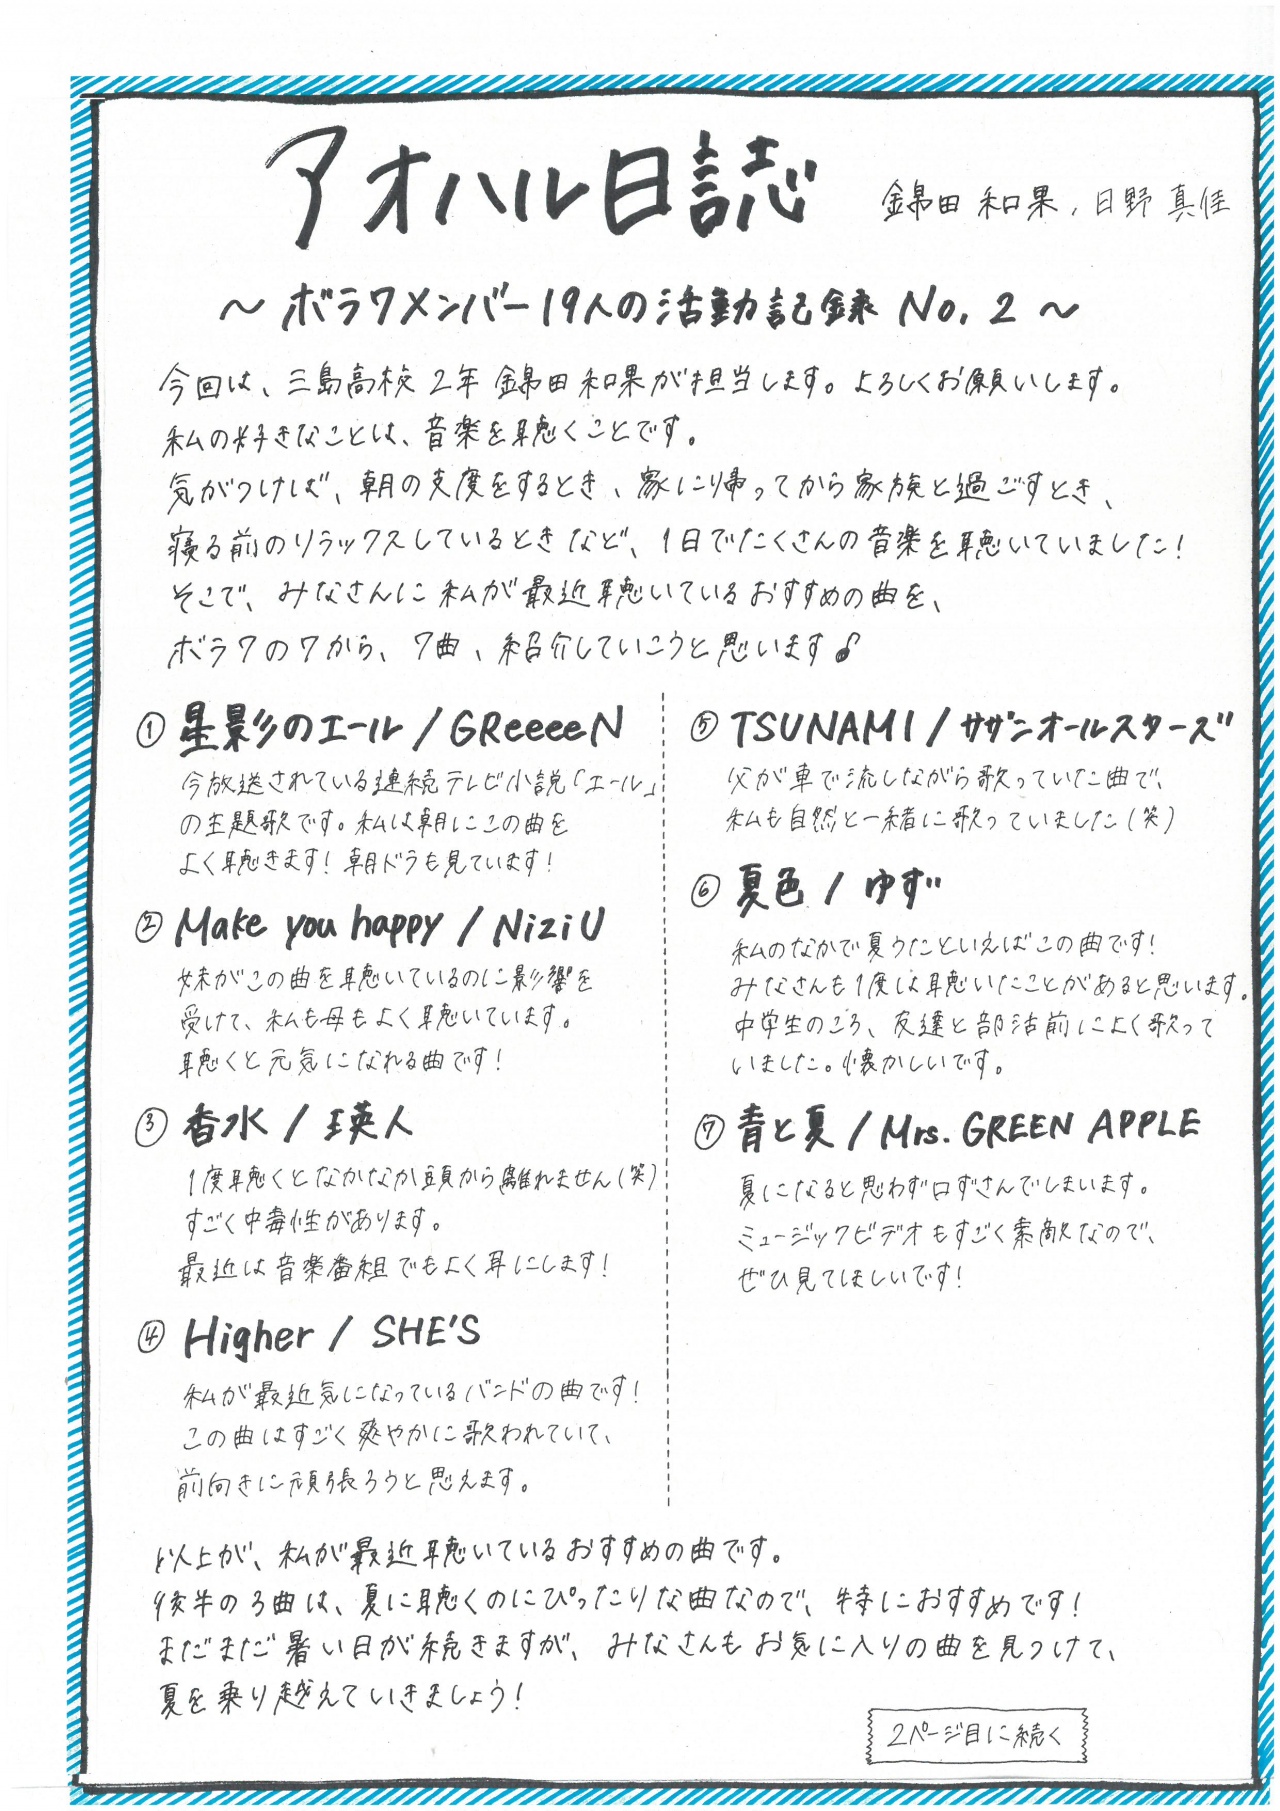 アオハル日誌
錦田 和果, 日野 真佳
～ボラワメンバー19人の活動記録 No.2～
今回は、三島高校 2年 錦田 和果が担当します。よろしくお願いします。
私の好きなことは、音楽を聴くことです。
気がつけば、朝の支度をするとき、家に帰ってから家族と過ごすとき、
寝る前のリラックスしているときなど、1日でたくさんの音楽を聴いていました！
そこで、みなさんに私が最近聴いているおすすめの曲を、
ボラワのワから、7曲、紹介していこうと思います♪
① 星影のエール / GReeeeN
今放送されている連続テレビ小説「エール」
の主題歌です。私は朝にこの曲を
よく聴きます！朝ドラも見ています！
② Make you happy / NiziU
妹がこの曲を聴いているのに影響を
受けて、私も母もよく聴いています。
聴くと元気になれる曲です！
③ 香水 / 瑛人
1度聴くとなかなか頭から離れません(笑)
すごく中毒性があります。
最近は音楽番組でもよく耳にします！
④ Higher / SHE'S
私が最近気になっているバンドの曲です！
この曲はすごく爽やかに歌われていて、
前向きに頑張ろうと思えます。
⑤ TSUNAMI / サザンオールスターズ
父が車で流しながら歌っていた曲で、
私も自然と一緒に歌っていました(笑)
⑥ 夏色 / ゆず
私のなかで夏うたといえばこの曲です！
みなさんも1度は聴いたことがあると思います。
中学生のころ、友達と部活前によく歌って
いました。懐かしいです。
⑦ 青と夏 / Mrs. GREEN APPLE
夏になると思わず口ずさんでしまいます。
ミュージックビデオもすごく素敵なので、
ぜひ見てほしいです！
以上が、私が最近聴いているおすすめの曲です。
後半の3曲は、夏に聴くのにぴったりな曲なので、特におすすめです！
まだまだ暑い日が続きますが、みなさんもお気に入りの曲を見つけて、
夏を乗り越えていきましょう！
2ページ目に続く